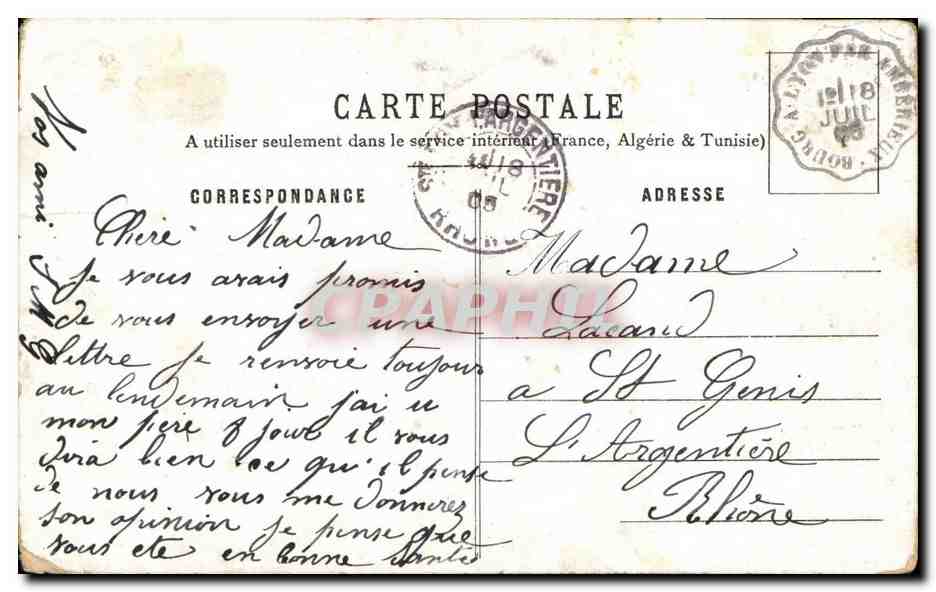 CARTE POSTALE
A utiliser seulement dans le service intérieur (France, Algérie & Tunisie)
CORRESPONDANCE
ADRESSE
BOURG A LYON PAR AMBERIEUX
18
JUIL
L'ARGENTIERE
18
RHONE
CPAPHIL
Chere Madame
je vous avais promis
de vous envoyer une
lettre je renvoie toujour
au lendemain j'ai u
mon père 8 jour il vous
dira bien ce qu'il pense
de nous vous me donnerez
son opinion je pense que
vous ete en bonne santé
Vos ami J M
Madame
Lacand
a St Genis
L'Argentière
Rhône